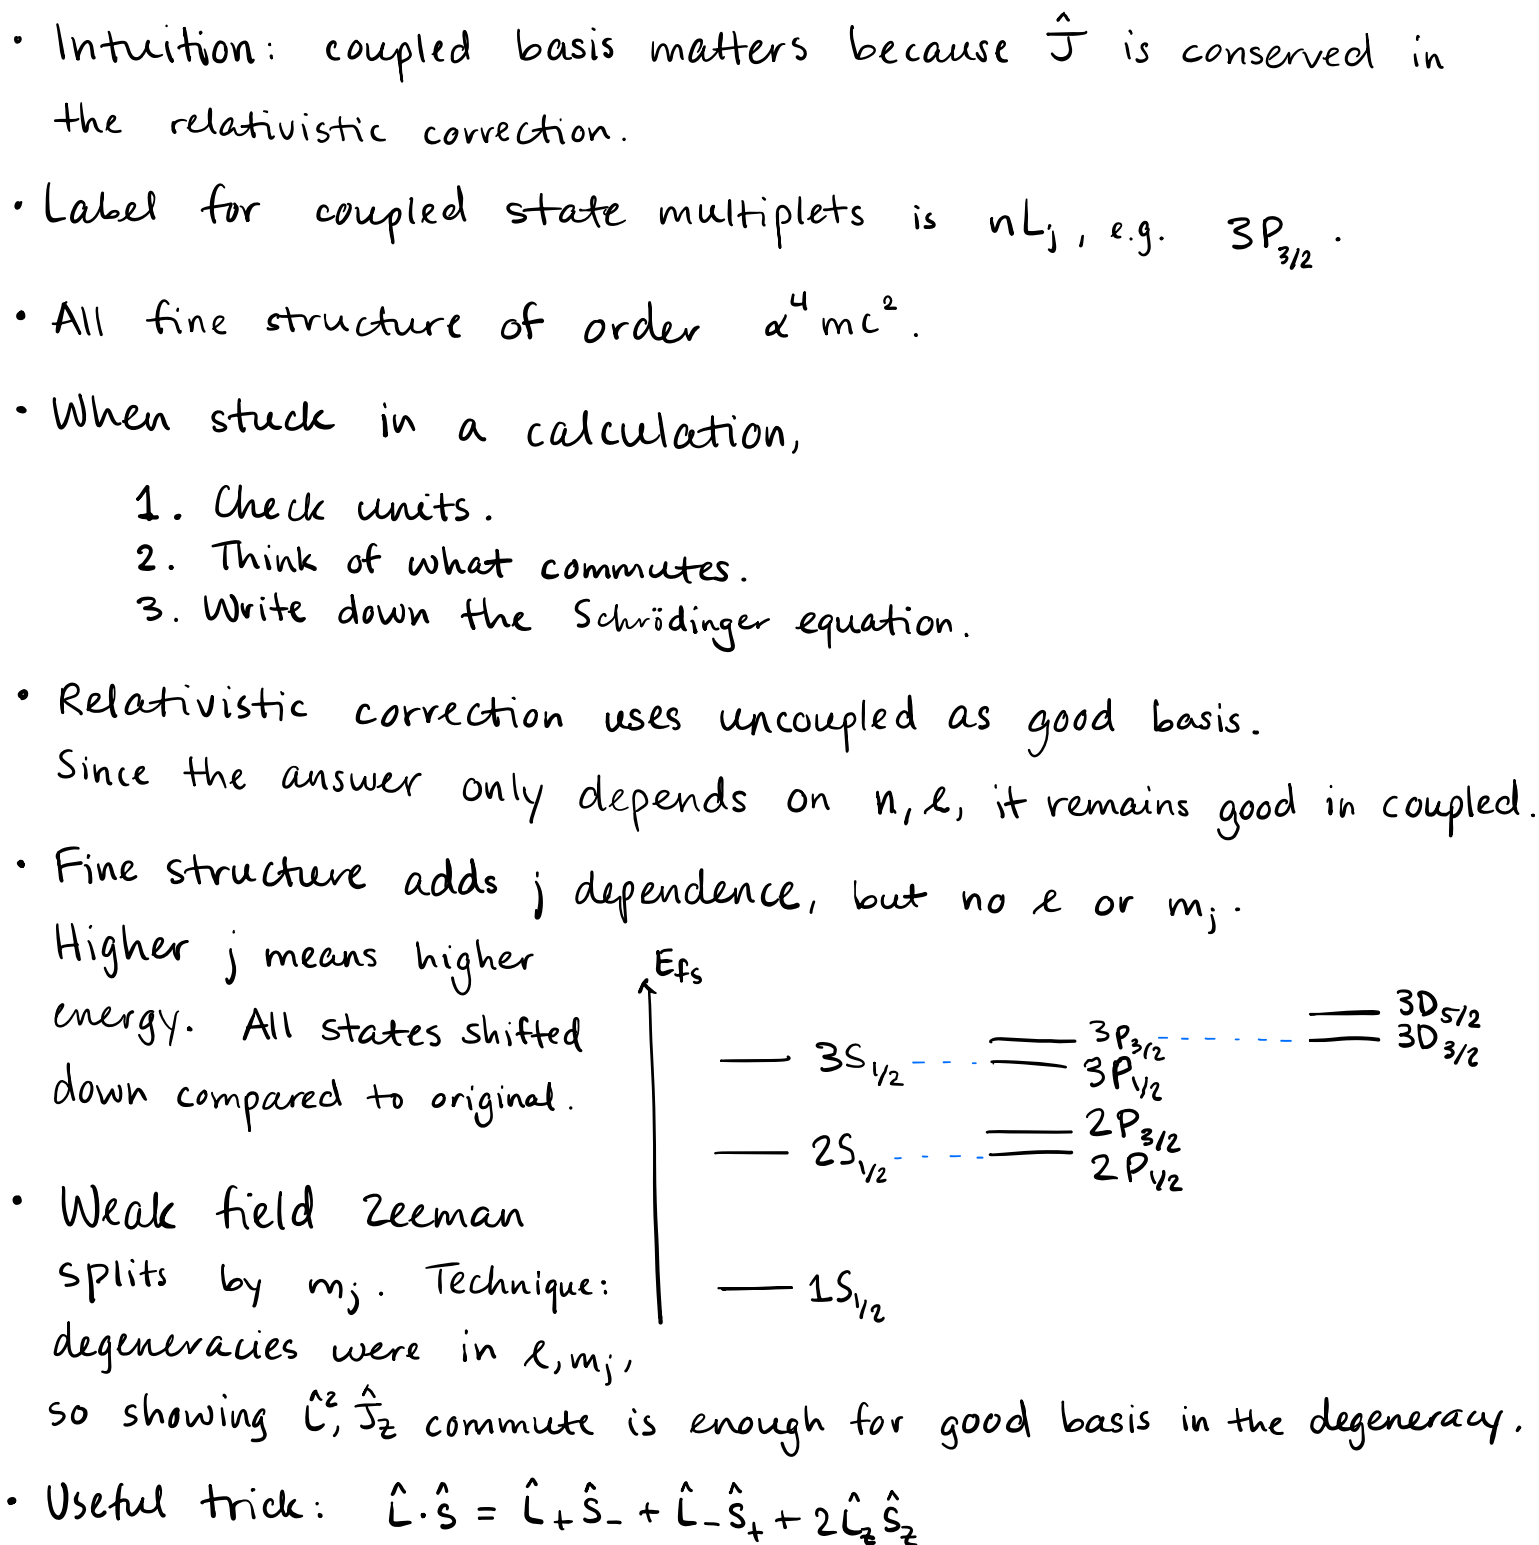 • Intuition: coupled basis matters because Ĵ is conserved in
the relativistic correction.
• Label for coupled state multiplets is nL_j, e.g. 3P_{3/2}.
• All fine structure of order α⁴mc².
• When stuck in a calculation,
1. Check units.
2. Think of what commutes.
3. Write down the Schrödinger equation.
• Relativistic correction uses uncoupled as good basis.
Since the answer only depends on n, ℓ, it remains good in coupled.
• Fine structure adds j dependence, but no ℓ or m_j.
Higher j means higher
energy. All states shifted
down compared to original.
E_{fs}
3D_{5/2}
3S_{1/2} 3P_{3/2} 3D_{3/2}
3P_{1/2}
2P_{3/2}
2S_{1/2} 2P_{1/2}
1S_{1/2}
• Weak field Zeeman
splits by m_j. Technique:
degeneracies were in ℓ, m_j,
so showing L̂², Ĵ_z commute is enough for good basis in the degeneracy.
• Useful trick: L̂·Ŝ = L̂₊Ŝ₋ + L̂₋Ŝ₊ + 2L̂_zŜ_z